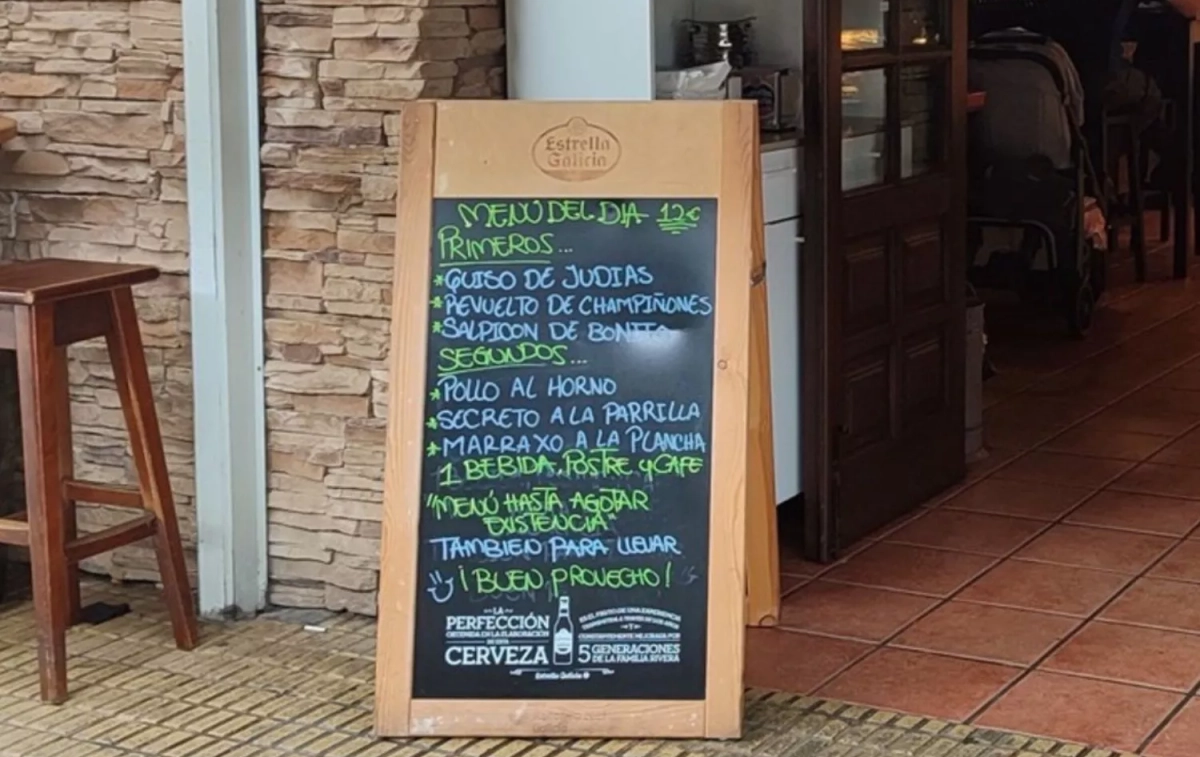 Estrella
Galicia
MENÚ DEL DIA 12€
PRIMEROS...
*GUISO DE JUDIAS
*REVUELTO DE CHAMPIÑONES
*SALPICON DE BONITO
SEGUNDOS...
*POLLO AL HORNO
*SECRETO A LA PARRILLA
*MARRAXO A LA PLANCHA
1 BEBIDA, POSTRE Y CAFE
"MENÚ HASTA AGOTAR
EXISTENCIA"
TAMBIEN PARA LLEVAR
¡BUEN PROVECHO!
LA
PERFECCIÓN
OBTENIDA EN LA ELABORACIÓN
DE ESTA
CERVEZA
ES EL FRUTO DE UNA EXPERIENCIA
TRANSMITIDA A TRAVÉS DE LOS AÑOS
Y
CONSTANTEMENTE MEJORADA POR
5 GENERACIONES
DE LA FAMILIA RIVERA
Estrella Galicia